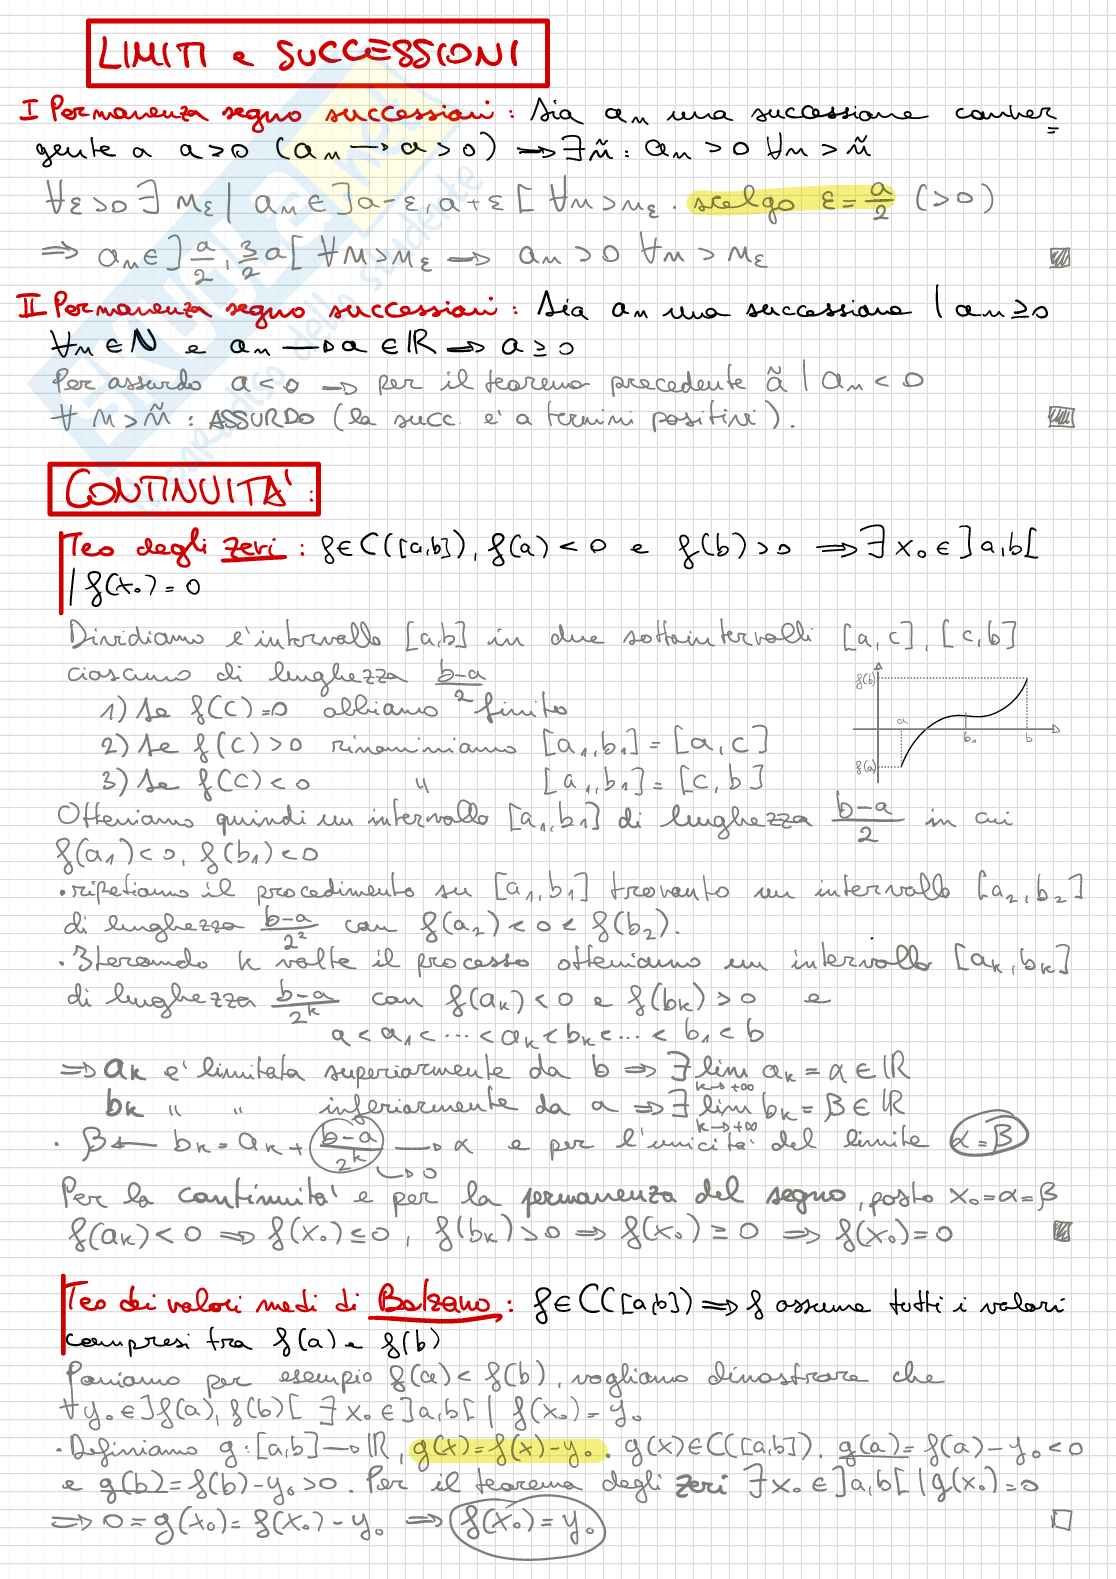 LIMITI e SUCCESSIONI
I Permanenza segno successioni: Sia aₙ una successione conver
gente a a>0 (aₙ → a > 0) ⟹ ∃ñ : aₙ > 0 ∀n > ñ
∀ε>0 ∃ nε | aₙ ∈ ]a-ε, a+ε[ ∀n>nε. scelgo ε = a/2 (>0)
⟹ aₙ ∈ ]a/2, 3/2 a[ ∀n>nε ⟹ aₙ > 0 ∀n > nε
II Permanenza segno successioni: Sia aₙ una successione | aₙ ≥ 0
∀n ∈ N e aₙ → a ∈ ℝ ⟹ a ≥ 0
Per assurdo a < 0 → per il teorema precedente ã | aₙ < 0
∀ n > ñ : ASSURDO (la succ. e' a termini positivi).
CONTINUITA':
Teo degli zeri : f∈C([a,b]), f(a) < 0 e f(b) > 0 ⟹ ∃ x₀ ∈ ]a,b[
| f(x₀) = 0
Dividiamo l'intervallo [a,b] in due sottointervalli [a,c], [c,b]
ciascuno di lunghezza b-a/2
1) Se f(c)=0 abbiamo finito
2) Se f(c) > 0 rinominiamo [a₁,b₁] = [a,c]
3) Se f(c) < 0 " [a₁,b₁] = [c,b]
f(b)
a
b₁
b
f(a)
Otteniamo quindi un intervallo [a₁,b₁] di lunghezza b-a/2 in cui
f(a₁)<0, f(b₁)<0
• ripetiamo il procedimento su [a₁,b₁] trovanto un intervallo [a₂,b₂]
di lunghezza b-a/2² con f(a₂) < 0 < f(b₂).
• Iterando k volte il processo otteniamo un intervallo [aₖ,bₖ]
di lunghezza b-a/2ᵏ con f(aₖ) < 0 e f(bₖ) > 0 e
a < a₁ < ... < aₖ < bₖ < ... < b₁ < b
⟹ aₖ e' limitata superiormente da b ⟹ ∃ lim k→+∞ aₖ = α ∈ ℝ
bₖ " " inferiormente da a ⟹ ∃ lim k→+∞ bₖ = β ∈ ℝ
• β ← bₖ = aₖ + b-a/2ᵏ → α e per l'unicita' del limite α = β
→ 0
Per la continuita' e per la permanenza del segno, posto x₀ = α = β
f(aₖ) < 0 ⟹ f(x₀) ≤ 0, f(bₖ) > 0 ⟹ f(x₀) ≥ 0 ⟹ f(x₀) = 0
Teo dei valori medi di Bolzano : f∈C([a,b]) ⟹ f assume tutti i valori
compresi tra f(a) e f(b)
Poniamo per esempio f(a) < f(b), vogliamo dimostrare che
∀y₀ ∈ ]f(a), f(b)[ ∃ x₀ ∈ ]a,b[ | f(x₀) = y₀
• Definiamo g : [a,b] → ℝ, g(x) = f(x) - y₀. g(x) ∈ C([a,b]). g(a) = f(a) - y₀ < 0
e g(b) = f(b) - y₀ > 0. Per il teorema degli zeri ∃ x₀ ∈ ]a,b[ | g(x₀) = 0
⟹ 0 = g(x₀) = f(x₀) - y₀ ⟹ f(x₀) = y₀